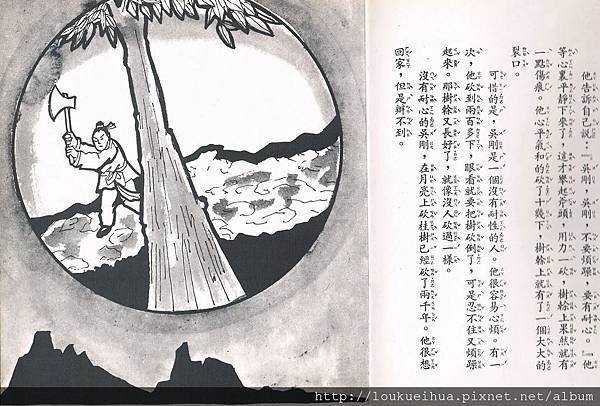 他告訴自己說：『吳剛，吳剛，不要煩躁，要有耐心。』他
等心裏平靜下來了，這才舉起斧頭，用力一砍，樹榦上果然就有
一點傷痕。他心平氣和的砍了十幾下，樹榦上就有了一個大大的
裂口。
可惜的是，吳剛是一個沒有耐性的人。他很容易心煩。有一
次，他砍到兩百多下，眼看就要把樹砍倒了，可是忍不住又煩躁
起來。那樹榦又長好了，就像沒人砍過一樣。
沒有耐心的吳剛，在月亮上砍桂樹已經砍了兩千年。他很想
回家，但是辦不到。
http://loukueihua.pixnet.net/album